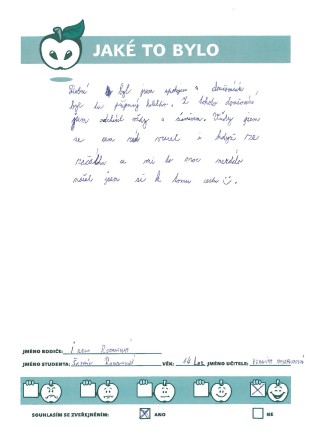 JAKÉ TO BYLO
Dobrý byl jsem spokojen s doučováním
byl tu příjemný kolektiv. Z tohoto doučování
jsem odcházel vždy s úsměvem. Vždy jsem
se sem rád vracel i když ze
začátku a mi to moc nešlo
našel jsem si k tomu cestu
JMÉNO RODIČE:
JMÉNO STUDENTA: VĚK: 14 let JMÉNO UČITELE:
SOUHLASÍM SE ZVEŘEJNĚNÍM: ANO NE